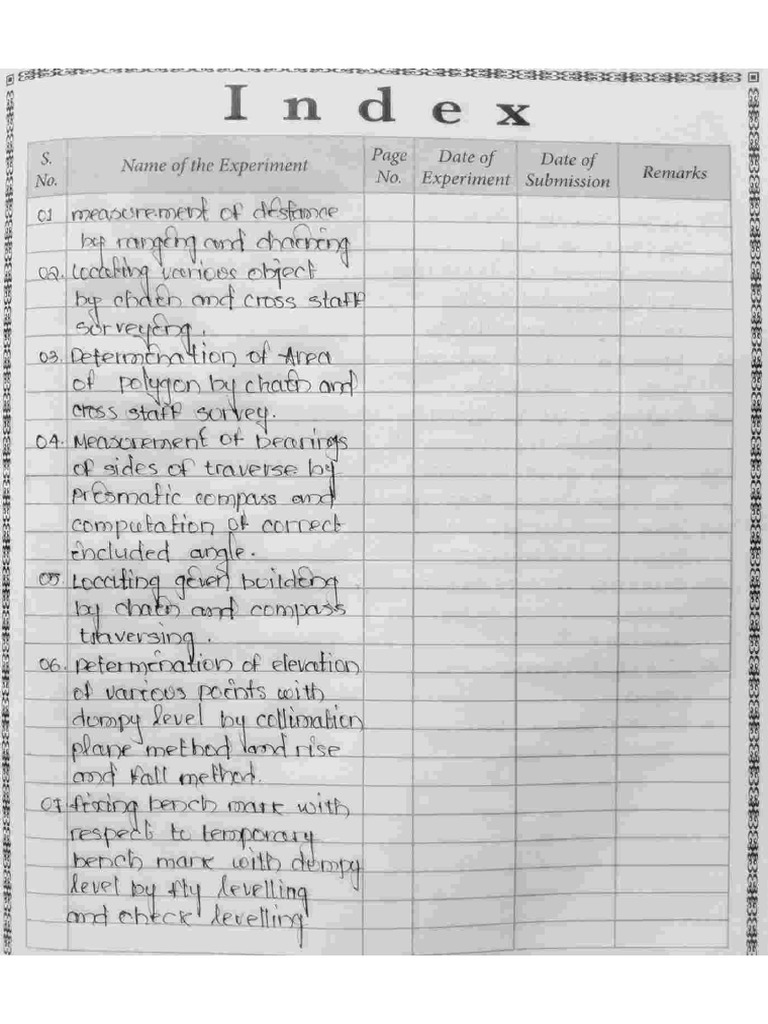 Index
S. No.
Name of the Experiment
Page No.
Date of Experiment
Date of Submission
Remarks
01 measurement of distance
by ranging and chaining
02. Locating various object
by chain and cross staff
surveying.
03. Determination of Area
of polygon by chain and
cross staff survey.
04. Measurement of bearings
of sides of traverse by
prismatic compass and
computation of correct
included angle.
05. Locating given building
by chain and compass
traversing.
06. Determination of elevation
of various points with
dumpy level by collimation
plane method and rise
and fall method.
07 fixing bench mark with
respect to temporary
bench mark with dumpy
level by fly levelling
and check levelling